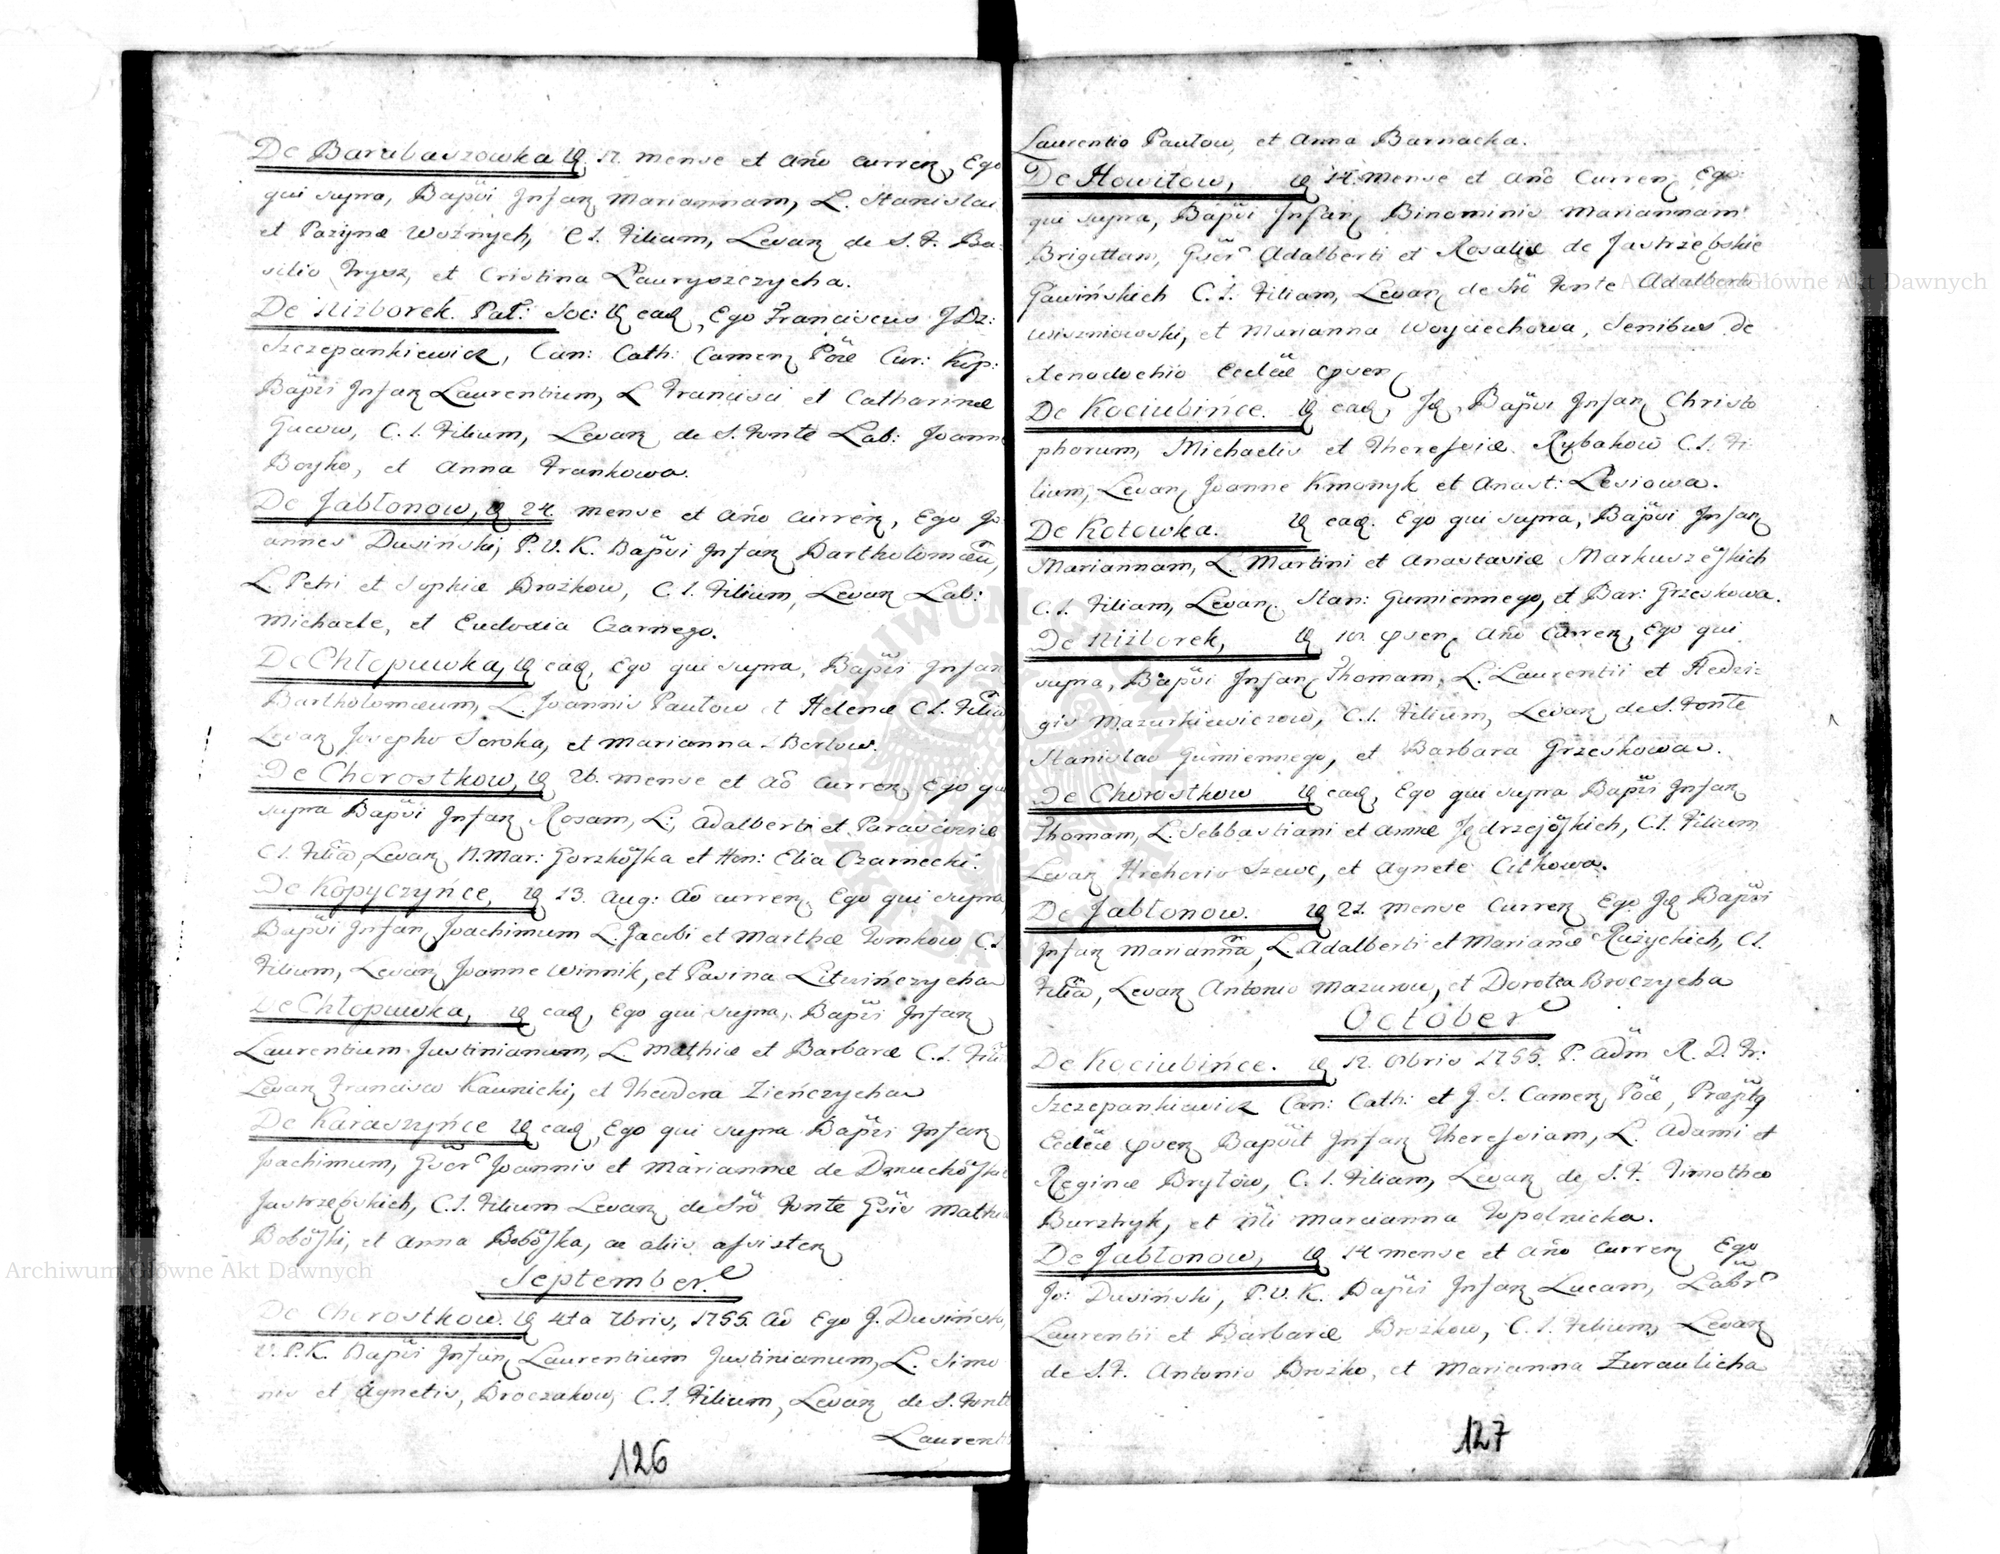 De Barabaszowka d 17. mense et año curren, Ego
qui supra, Bapvi Infan Mariannam, L. Stanislai
et Pazynæ Woźnych, C. L. Filiam, Levan de S. F. Ba-
silio Hrysz, et Cristina Lauryszczycha.
De Niżborek. Pal: Soc: d ead, Ego Franciscus J Dz:
Szczepankiewicz, Can: Cath: Camen Pöæ Cur: Kop:
Bapvi Infan Laurentium, L Francisci et Catharinæ
C. L. Filium, Levan de S. Fonte Lab: Joann
Boyko, et Anna Frankowa.
De Jabłonow, d 24. mense et año curren, Ego Jo
annes Dusiński, P. V. K. Bapvi Infan Bartholomæu,
L. Petri et Sophiæ Brożkow, C. L. Filium, Levan Lab:
Michaele, et Eudoxia Czarnego.
De Chłopuwka, d ead, Ego qui supra, Bapvi Infan
Bartholomæum, L. Joannis Pawłow et Helenæ C L. Filiu
Levan Josepho Soroka, et Marianna Bertow.
De Chorostkow, d 26. mense et Aõ curren Ego qui
supra Bapvi Infan Rosam, L; Adalberti et
C L. Filiã, Levan N. Mar: Gorzkoſka et Hon: Elia Czarnecki.
De Kopyczyńce, d 13. Aug: Aõ curren. Ego qui supra,
Bapvi Infan Joachimum L. Jacobi et Marthæ Tomkow C L
Filium, Levan Joanne Winnik, et Pasina Litwińczycha
De Chłopuwka, d ead, Ego qui supra, Bapvi Infan
Laurentium Justinianum, L Mathiæ et Barbaræ C. L. Fili
Levan Francisco Kawnicki, et Theodora Zieńczycha
De Karaszyńce d ead, Ego qui supra Bapvi Infan
Joachimum, Gser Joannis et Mariannæ de Dmuchoſka
Jastrzębskich, C. L. Filium Levan de Sro Fonte Gsis Mathia
Boboſki, et Anna Boboſka, ac aliis aſsisten
September.
De Chorostkow. d 4ta 7bris, 1755. Aõ Ego J. Dusiński,
V. P. K. Bapvi Infan Laurentium Justinianum, L. Simo
nis et Agnetis, Broczakow, C. L. Filium, Levan de S. Fonte
Laurent
126
Laurentio Pawłow, et Anna Barnacka.
De Howiłow, d 14. mense et año Curren Ego
qui supra, Bapvi Infan Binominis Mariannam
Brigittam, Gser Adalberti et Rosaliæ de Jastrzębskie
Gawińskich C. L. Filiam, Levan de Sro Fonte Adalberto
Wiszniowski, et Marianna Woyciechowa, Senibus de
Xenodochio Ecclæ
De Kociubińce. d ead, Id, Bapvi Infan Christo
phorum, Michaelis et Thereſsiæ Rybakow C. L. Fi
lium, Levan Joanne Kmonyk et Anast: Lesiowa.
De Kotowka. d ead. Ego qui supra, Bapvi Infan
Mariannam, L. Martini et Anastasiæ Markuszeſkich
C. L. Filiam, Levan. Stan: Gumiennego, et Bar: Grzeskowa.
De Niżborek, d año Curren, Ego qui
supra, Bapvi Infan Thomam, L. Laurentii et Hedvi-
gis Mazurkiewiczow, C. L. Filium, Levan de S. Fonte
Stanislao Gumiennego, et Barbara Grzeskowa.
De Chorostkow d ead, Ego qui supra Bapvi Infan
Thomam, L. Sebbastiani et Annæ Jędrzejoſkich, C. L. Filium
Levan Hrehorio Szewc, et Agnete Citkowa.
De Jabłonow. d 21. mense Curren Ego Id Bapvi
Infan Marianna, L Adalberti et Marianæ Rużyckich, C L.
Filiã, Levan Antonio Mazurow, et Dorotea Broczycha
October
De Kociubińce. d 12. 8bris 1755. P. Adm R. D. Fr:
Szczepankiewicz Can: Cath: et J. S. Camen Pöæ,
Ecclæ Bapvit Infan Thereſsiam, L. Adami et
Reginæ Bryłow, C. L. Filiam, Levan de S. F. Timotheo
Burzhyk, et Marcianna Topolnicka.
De Jabłonow, d 14 mense et año Curren Ego
Jo: Dusiński, P. V. K. Bapvi Infan Lucam, Labr
Laurentii et Barbaræ Brożkow, C. L. Filium, Levan
de S. F. Antonio Brożko, et Marianna Zuraulicha
127
Archiwum Główne Akt Dawnych
Archiwum Główne Akt Dawnych